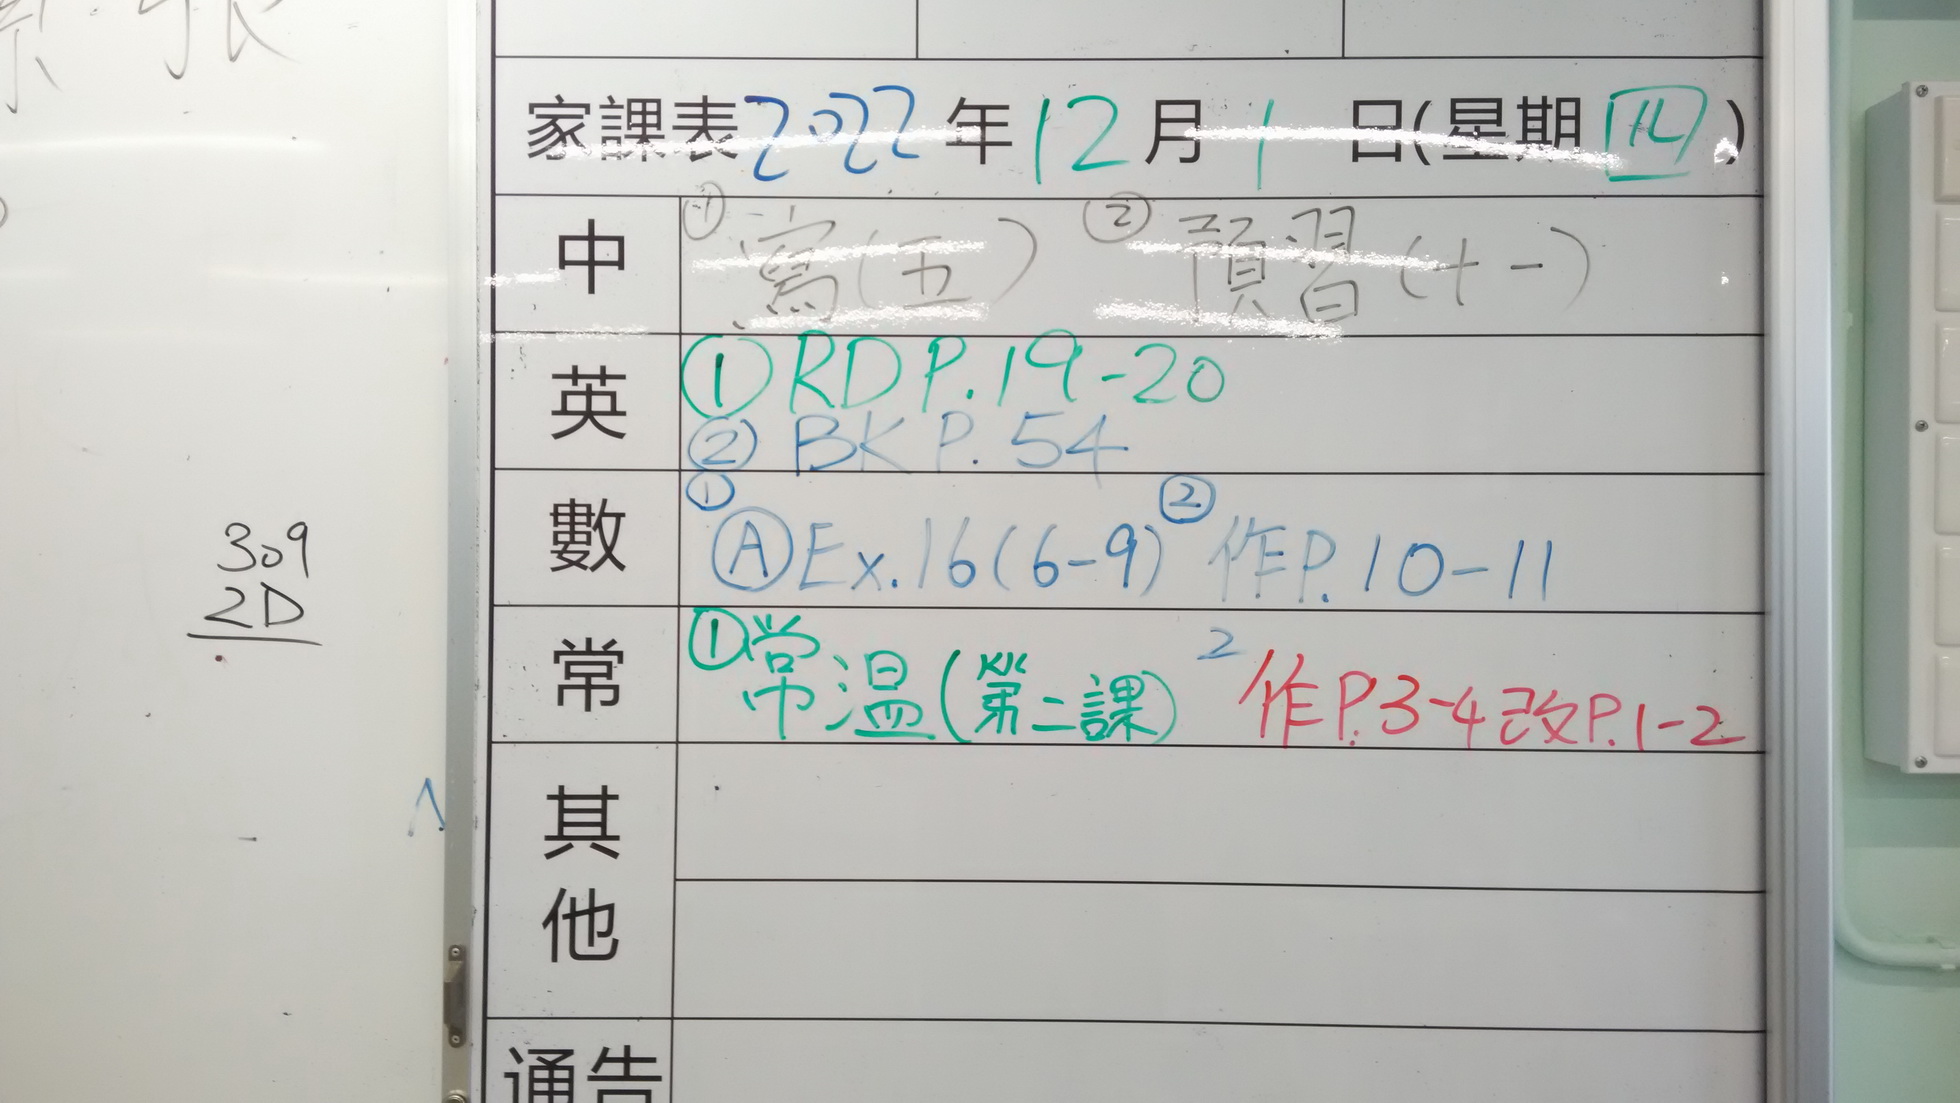 張
家課表2022年12月1日(星期四)
中 ①寫(五) ②預習(十一)
英 ①RD P.19-20
②BK P.54
數 ①ⒶEx.16(6-9) ②作P.10-11
常 ①常温(第二課) 2作P.3-4改P.1-2
其他
通告
309
2D